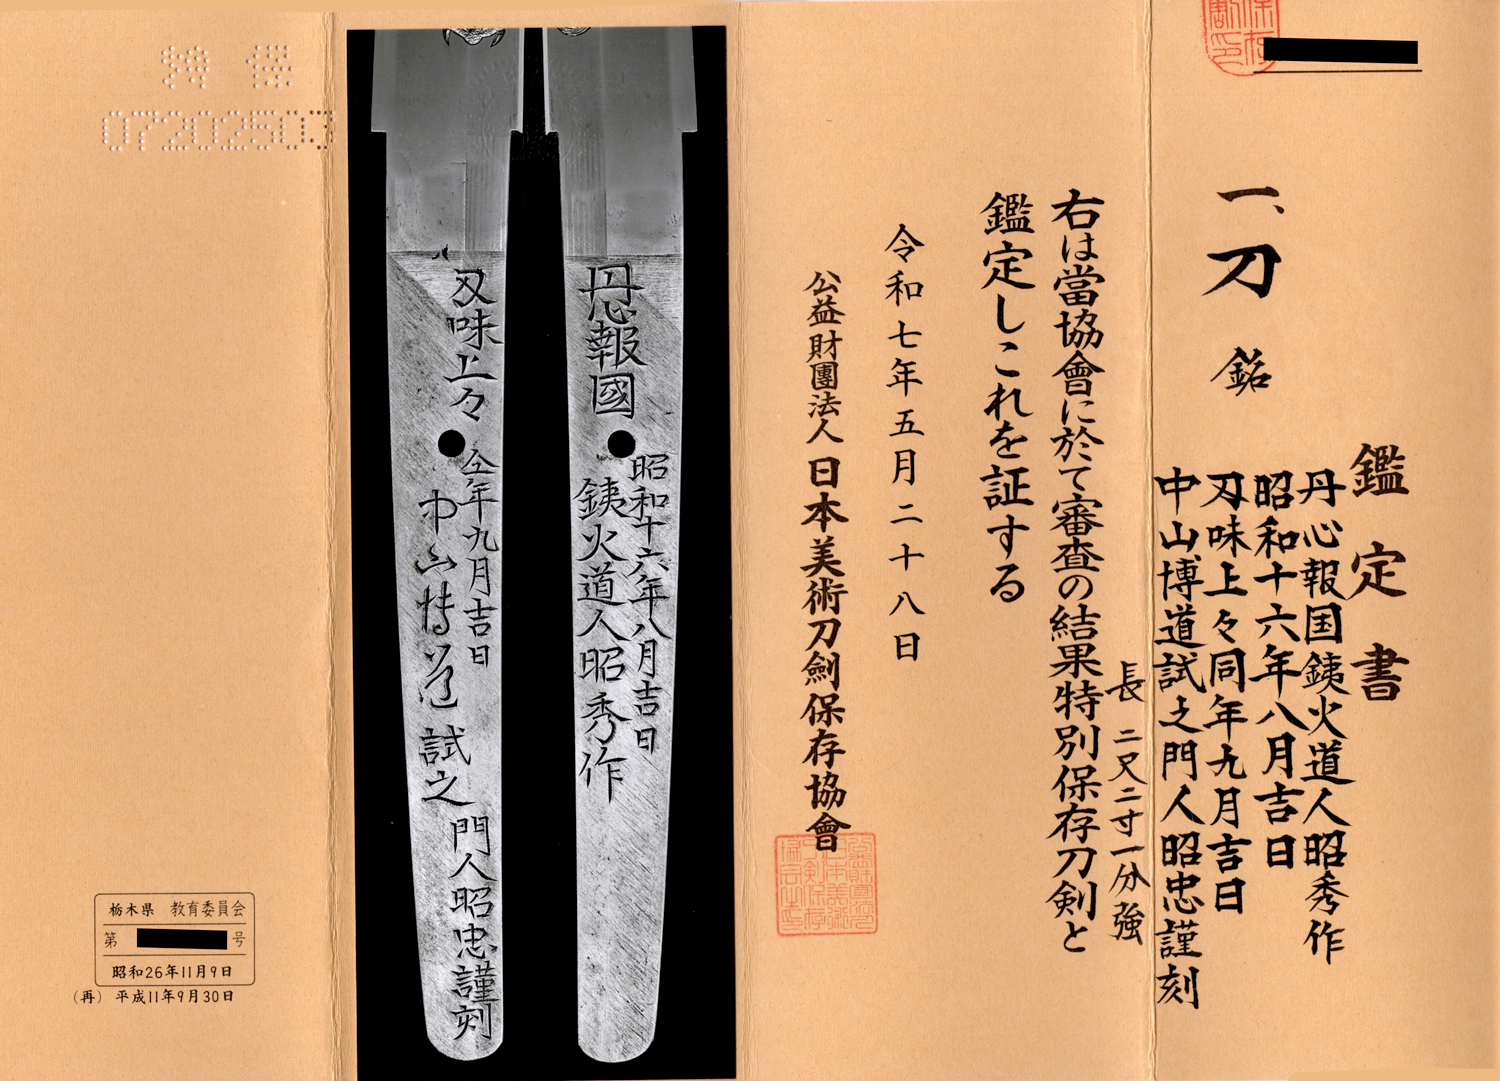 鑑定書
一、刀 銘
丹心報国銕火道人昭秀作
昭和十六年八月吉日
刃味上々同年九月吉日
中山博道試之門人昭忠謹刻
長 二尺二寸一分強
右は當協會に於て審査の結果特別保存刀剣と
鑑定しこれを証する
令和七年五月二十八日
公益財團法人 日本美術刀劍保存協會
丹心報國
昭和十六年八月吉日
銕火道人昭秀作
刃味上々
仝年九月吉日
中山博道試之
門人昭忠謹刻
特保
07202503
栃木県 教育委員会
第 号
昭和26年11月9日
(再) 平成11年9月30日